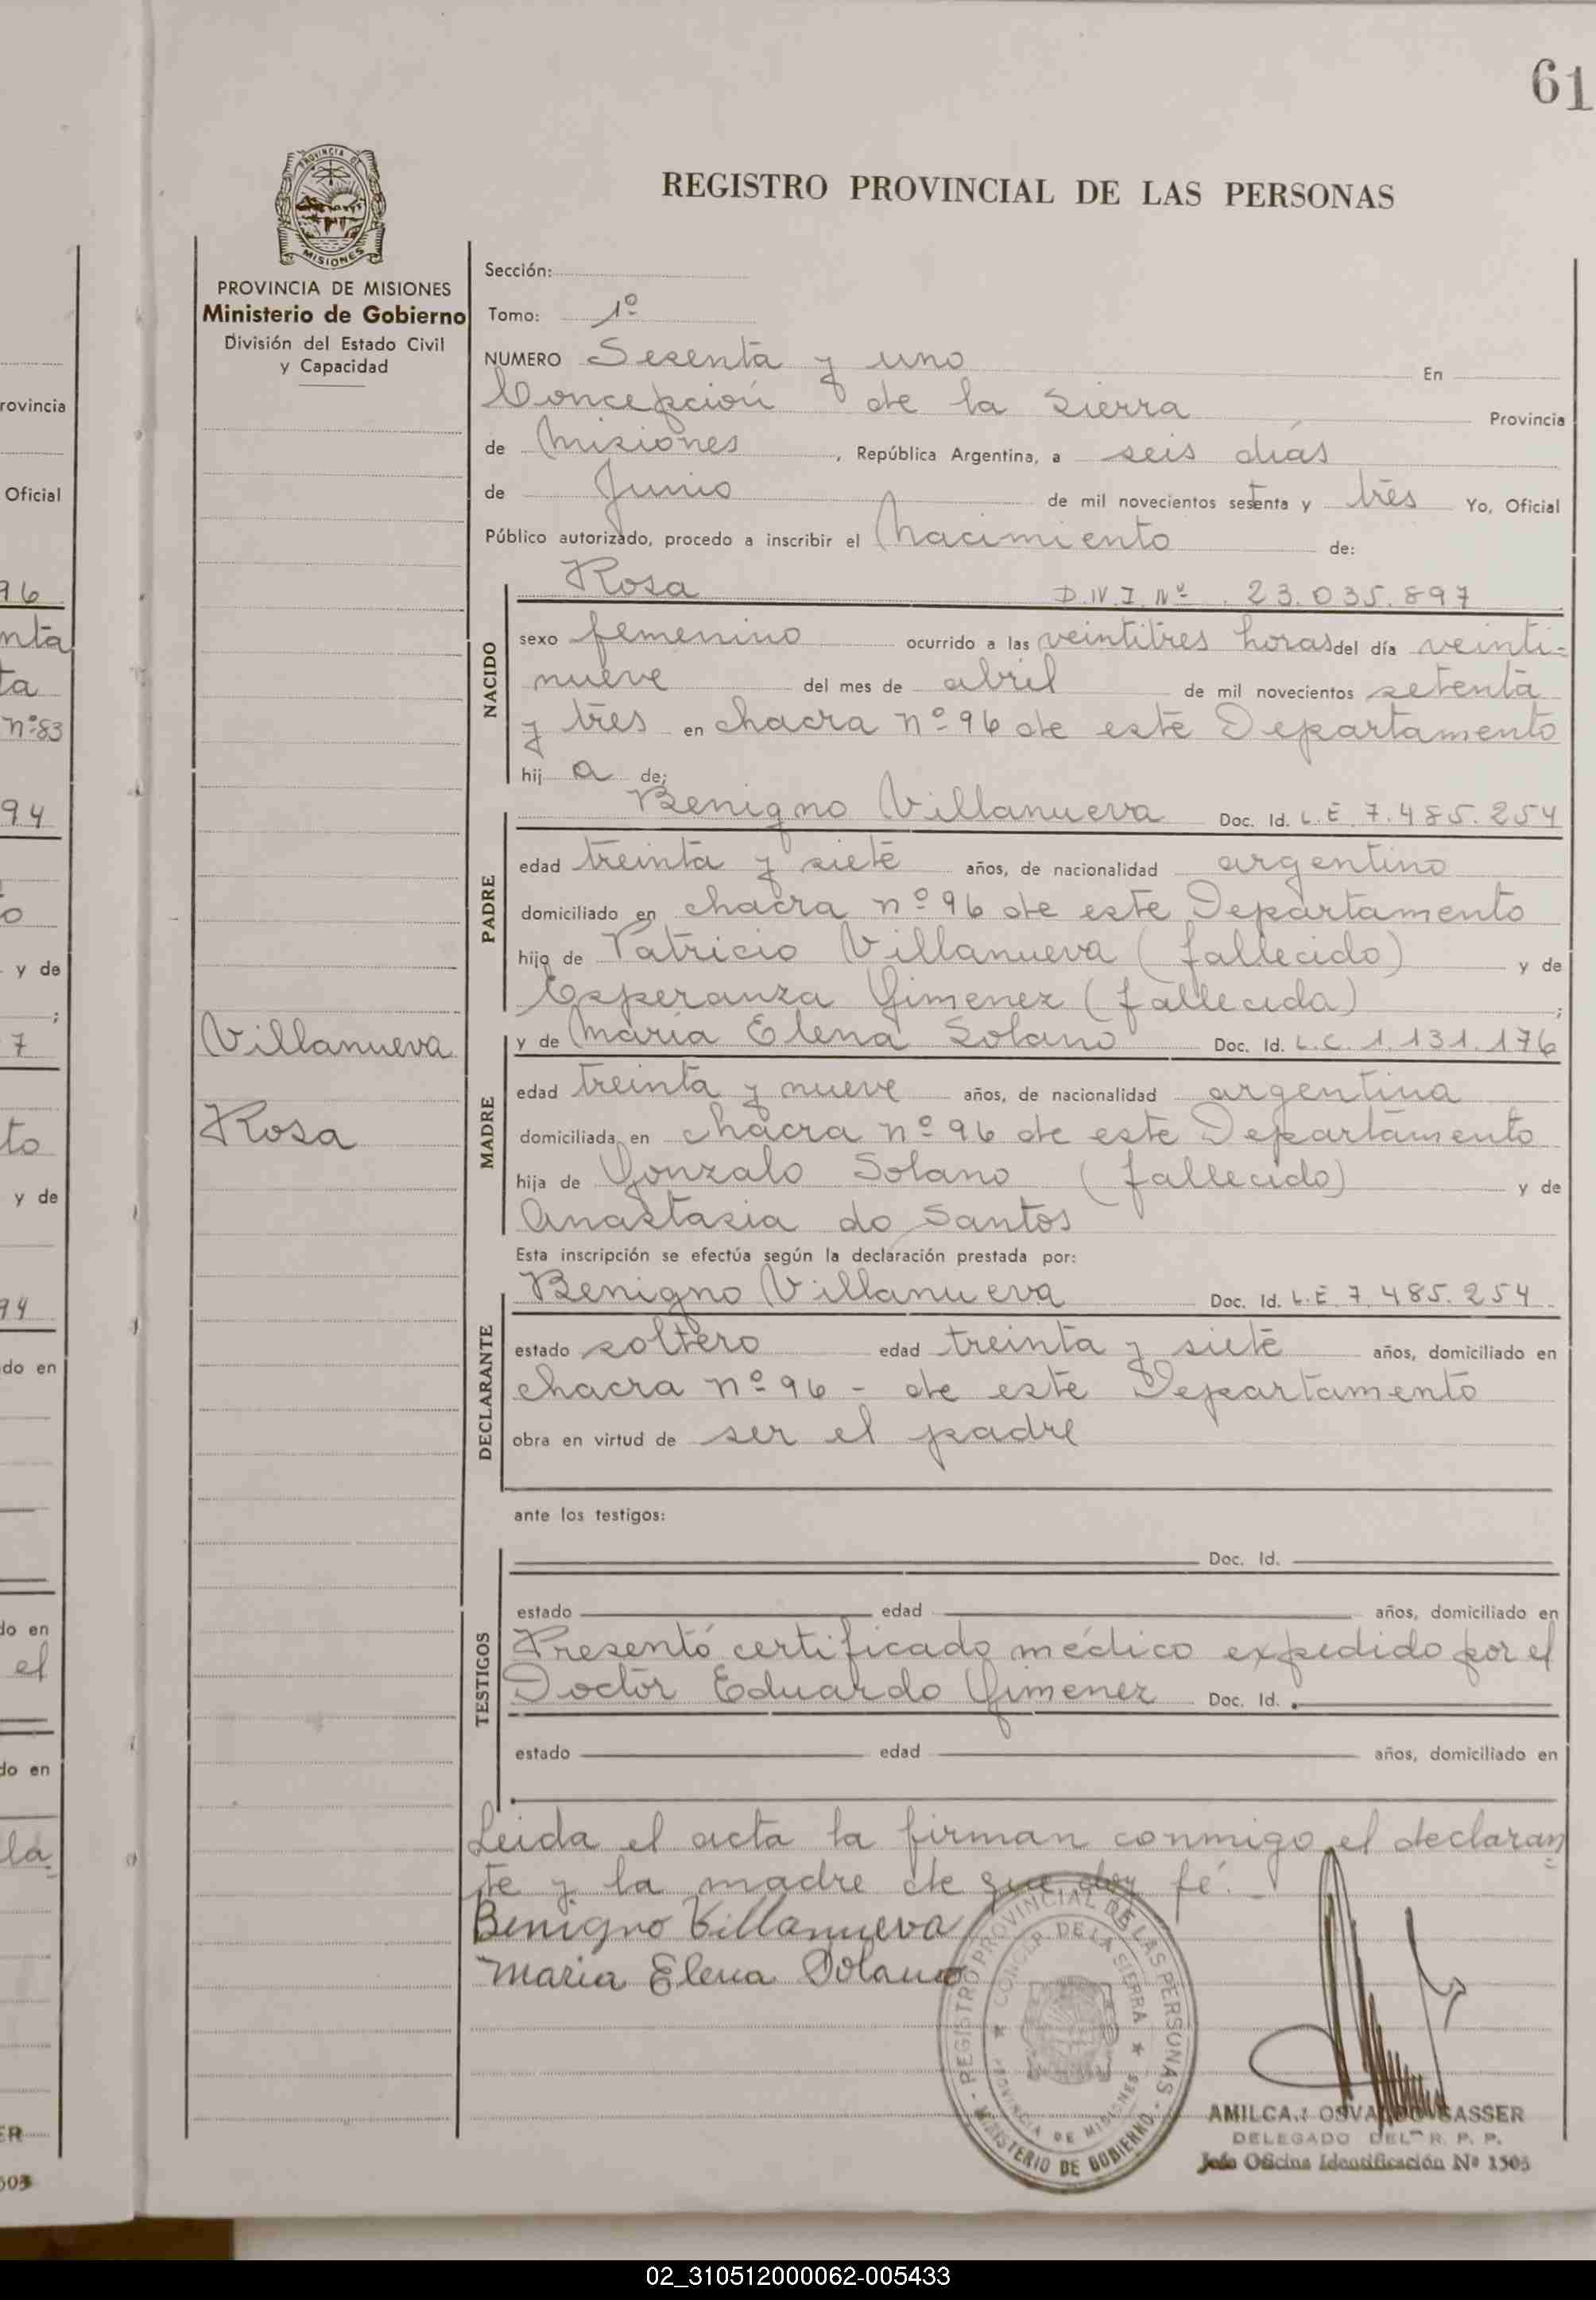 61
PROVINCIA DE
MISIONES
REGISTRO PROVINCIAL DE LAS PERSONAS
PROVINCIA DE MISIONES
Ministerio de Gobierno
División del Estado Civil
y Capacidad
Villanueva
Rosa
Sección:
Tomo: 1º
NUMERO Sesenta y uno En
Concepción de la Sierra Provincia
de Misiones, República Argentina, a seis días
de Junio de mil novecientos setenta y tres Yo, Oficial
Público autorizado, procedo a inscribir el Nacimiento de:
NACIDO
Rosa D.N.I. Nº 23.035.897
sexo femenino ocurrido a las veintitres horas del día veinti=
nueve del mes de abril de mil novecientos setenta
y tres en chacra nº 96 de este Departamento
hij a de;
PADRE
Benigno Villanueva Doc. Id. L.E. 7.485.254
edad treinta y siete años, de nacionalidad argentino
domiciliado en chacra nº 96 de este Departamento
hijo de Patricio Villanueva (fallecido) y de
Esperanza Gimenez (fallecida) ;
MADRE
y de Maria Elena Solano Doc. Id. L.C. 1.131.176
edad treinta y nueve años, de nacionalidad argentina
domiciliada en chacra nº 96 de este Departamento
hija de Gonzalo Solano (fallecido) y de
Anastasia do Santos
Esta inscripción se efectúa según la declaración prestada por:
DECLARANTE
Benigno Villanueva Doc. Id. L.E. 7.485.254
estado soltero edad treinta y siete años, domiciliado en
chacra nº 96 - de este Departamento
obra en virtud de ser el padre
ante los testigos:
TESTIGOS
Doc. Id.
estado edad años, domiciliado en
Presentó certificado médico expedido por el
Doctor Eduardo Gimenez Doc. Id.
estado edad años, domiciliado en
Leida el acta la firman conmigo el declaran=
te y la madre de que doy fé.
Benigno Villanueva
Maria Elena Solano
REGISTRO PROVINCIAL DE LAS PERSONAS
CONCEP. DE LA SIERRA
PROVINCIA DE MISIONES
MINISTERIO DE GOBIERNO
AMILCAR OSVALDO GASSER
DELEGADO DEL R. P. P.
Jefe Oficina Identificación Nº 1503
rovincia
Oficial
96
nta
ta
nº 83
94
o
y de
;
7
to
y de
94
do en
do en
el
do en
la
ER
503
02_310512000062-005433